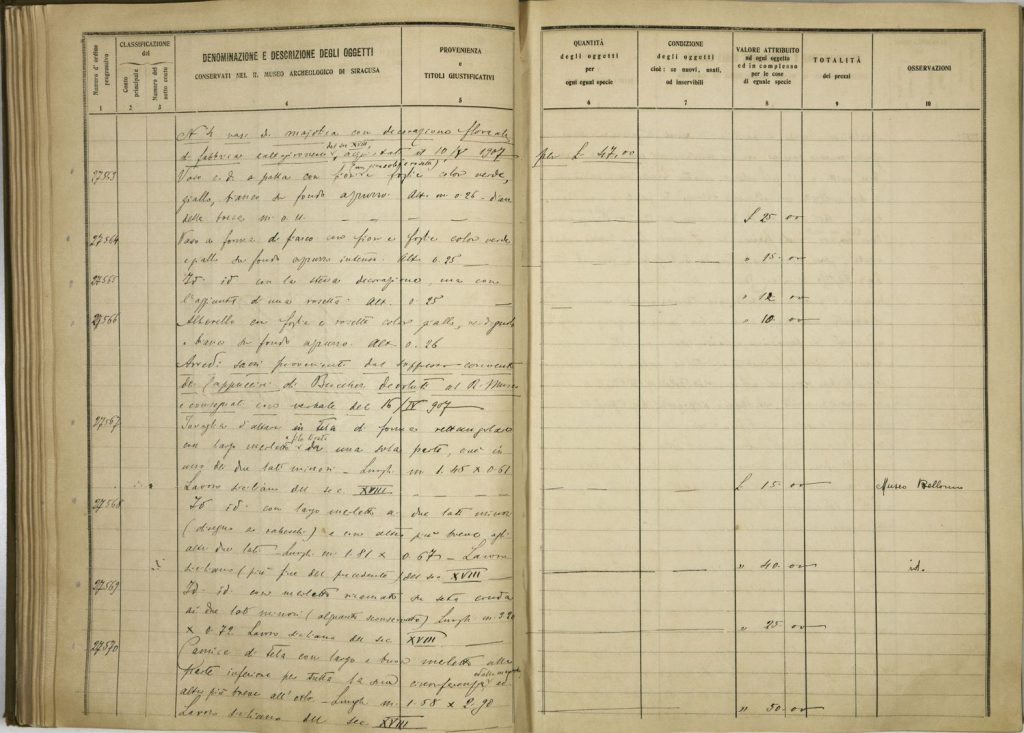 Numero d'ordine progressivo
CLASSIFICAZIONE del
Conto principale
Numero del sotto conto
DENOMINAZIONE E DESCRIZIONE DEGLI OGGETTI
CONSERVATI NEL R. MUSEO ARCHEOLOGICO DI SIRACUSA
PROVENIENZA
e
TITOLI GIUSTIFICATIVI
QUANTITÀ
degli oggetti
per
ogni egual specie
CONDIZIONE
degli oggetti
cioè: se nuovi, usati,
od inservibili
VALORE ATTRIBUITO
ad ogni oggetto
ed in complesso
per le cose
di eguale specie
TOTALITÀ
dei prezzi
OSSERVAZIONI
1 2 3 4 5 6 7 8 9 10
N. 4 vasi di majolica con decorazione floreale,
di fabbrica caltagironese del sec XVIII, acquistati il 10/V 1907 per L 47.00
27563 Vaso c.d. a palla con fiori e foglie color verde,
giallo, bianco su fondo azzurro. Alt. m 0.26 - diam
della bocca m 0.11 £ 25.00
27564 Vaso a forma di fiasco con fiori e foglie color verde
e giallo su fondo azzurro intenso. Alt. 0.25 " 15.00
27565 Id. id. con la stessa decorazione, ma con
l'aggiunta di una rosetta. Alt. 0.25 " 12 00
27566 Alborello con foglie e rosette color giallo, verde
e bianco su fondo azzurro. Alt. 0.26 " 10.00
Arredi sacri provenienti dal soppresso convento
dei Cappuccini di Buccheri devoluti al R. Museo
e consegnati con verbale del 16/IV 907
27567 Tovaglia d'altare in tela di forma rettangolare
con largo merletto da una sola parte, cioè in
uno dei due lati minori - Lungh. m 1.45 x 0.61
Lavoro siciliano del sec. XVIII £ 15.00 Museo Bellomo
27568 Id. id. con largo merletto a due lati minori
(disegno a rabeschi) e uno altro più breve agli
altri due lati - Lungh. m. 1.81 x 0.67 - Lavoro
siciliano (più fine del precedente) del sec XVIII " 40.00 id.
27569 Id. id. con merletto ricamato su seta cruda
ai due lati minori (alquanto sconservato) Lungh. m. 3.20
x 0.72. Lavoro siciliano del sec XVIII " 25.00
27570 Camice di tela con largo e buon merletto alla
parte inferiore per tutta la sua circonferenza ed
altro più breve all'orlo. - Lungh. m. 1.58 x 2.90
Lavoro siciliano del sec XVIII " 50.00